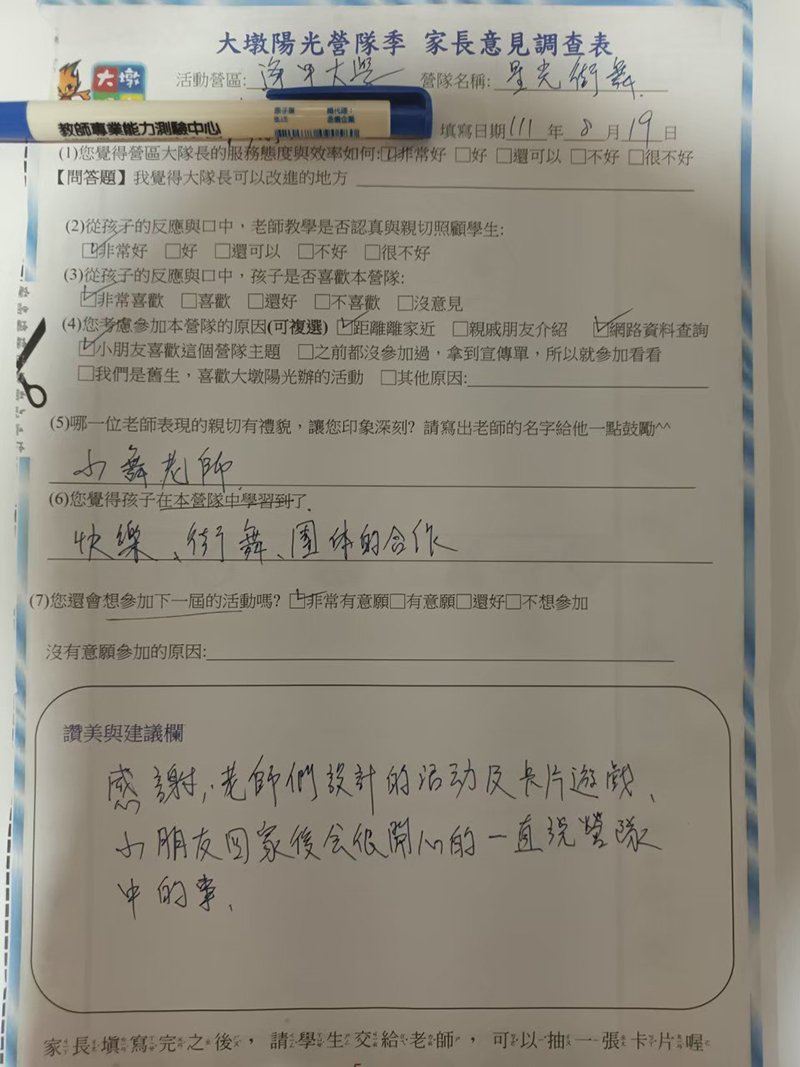 大墩陽光營隊季 家長意見調查表
大墩
活動營區: 逢甲大學 營隊名稱: 星光街舞
教師專業能力測驗中心
填寫日期 111 年 8 月 19 日
(1)您覺得營區大隊長的服務態度與效率如何:☑非常好 □好 □還可以 □不好 □很不好
【問答題】我覺得大隊長可以改進的地方
(2)從孩子的反應與口中，老師教學是否認真與親切照顧學生:
☑非常好 □好 □還可以 □不好 □很不好
(3)從孩子的反應與口中，孩子是否喜歡本營隊:
☑非常喜歡 □喜歡 □還好 □不喜歡 □沒意見
(4)您考慮參加本營隊的原因(可複選) ☑距離離家近 □親戚朋友介紹 ☑網路資料查詢
☑小朋友喜歡這個營隊主題 □之前都沒參加過，拿到宣傳單，所以就參加看看
□我們是舊生，喜歡大墩陽光辦的活動 □其他原因:
(5)哪一位老師表現的親切有禮貌，讓您印象深刻? 請寫出老師的名字給他一點鼓勵^^
小舞老師.
(6)您覺得孩子在本營隊中學習到了.
快樂、街舞、團体的合作
(7)您還會想參加下一屆的活動嗎? ☑非常有意願□有意願□還好□不想參加
沒有意願參加的原因:
讚美與建議欄
感謝，老師們設計的活动及卡片遊戲、
小朋友回家後会很開心的一直說營隊
中的事、
家長填寫完之後，請學生交給老師，可以抽一張卡片喔